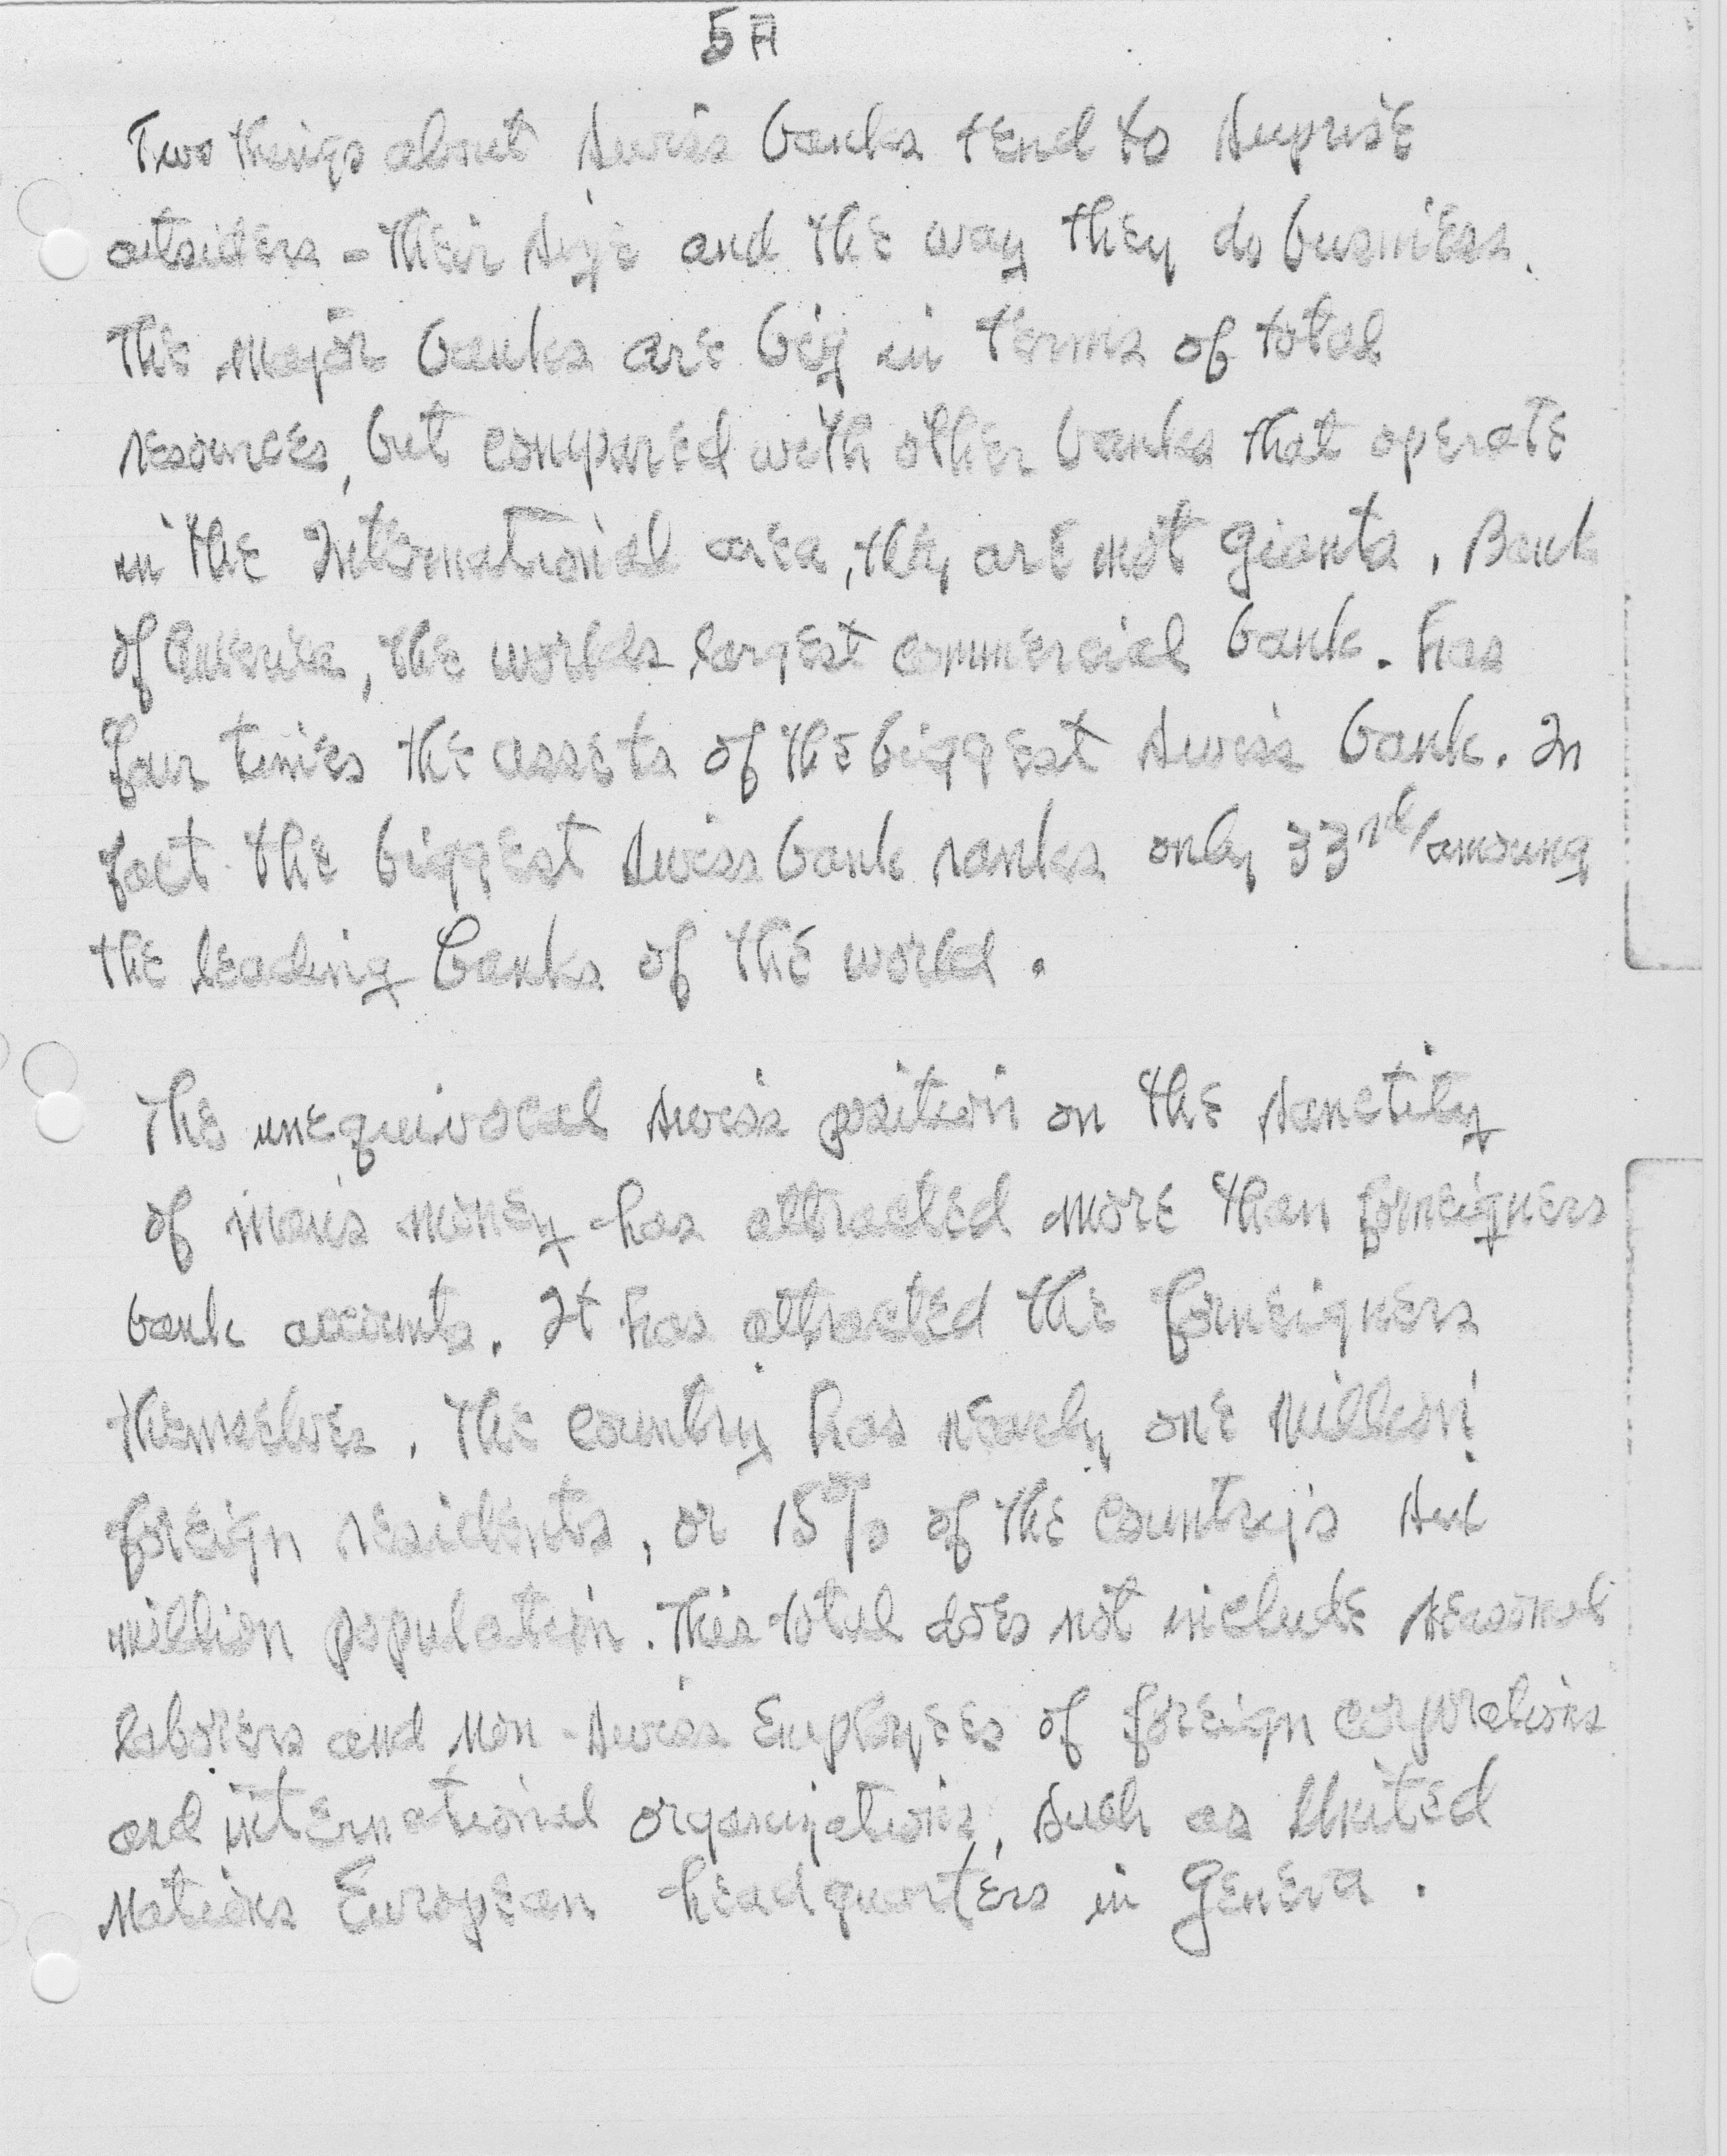 5A
Two things about Swiss banks tend to suprise
outsiders - their size and the way they do business.
The major banks are big in terms of total
resources, but compared with other banks that operate
in the International area, they are not giants. Bank
of America, the worlds largest commercial bank. has
four times the assets of the biggest Swiss bank. In
fact the biggest Swiss bank ranks only 33rd/amoung
the leading banks of the world.
The unequivocal Swiss position on the sanctity
of man's money has attracted more than forneigners
bank accounts. It has attracted the forneigners
themselves. The country has nearly one million
foreign residents, or 15% of the country's six
million population. This total does not include seasonal
laborers and non-Swiss employees of foreign corporations
and international organizations, such as United
Nations European headquarters in Geneva.